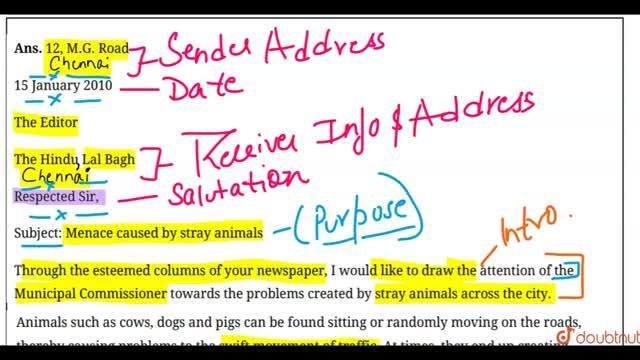 Ans. 12, M.G. Road
Chennai
} - Sender Address
15 January 2010 — Date
The Editor
The Hindu, Lal Bagh
Chennai
} - Receiver Info & Address
Respected Sir, — Salutation
Subject: Menace caused by stray animals - (Purpose)
Intro.
Through the esteemed columns of your newspaper, I would like to draw the attention of the
Municipal Commissioner towards the problems created by stray animals across the city.
Animals such as cows, dogs and pigs can be found sitting or randomly moving on the roads,
thereby causing problems to the swift movement of traffic. At times, they end up creating
doubtnut